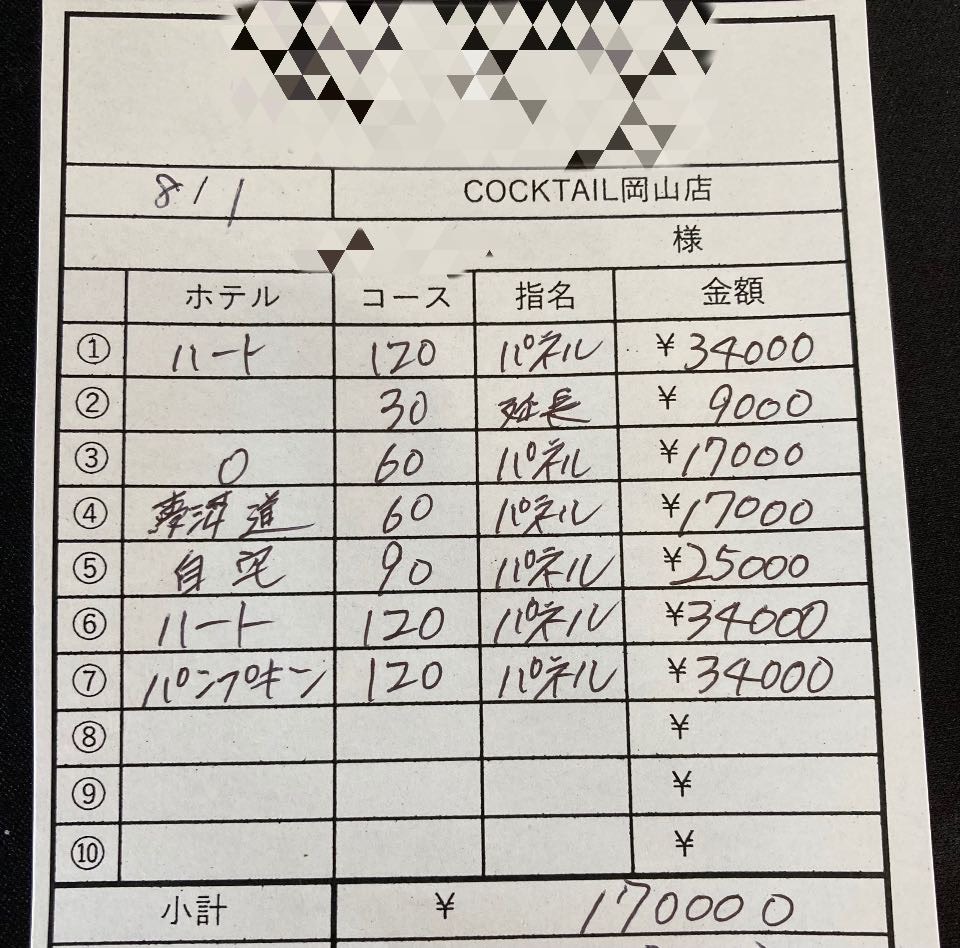 8/1
COCKTAIL岡山店
様
ホテル コース 指名 金額
① ハート 120 パネル ¥34000
② 30 延長 ¥9000
③ O 60 パネル ¥17000
④ 60 パネル ¥17000
⑤ 自宅 90 パネル ¥25000
⑥ ハート 120 パネル ¥34000
⑦ パンプキン 120 パネル ¥34000
⑧ ¥
⑨ ¥
⑩ ¥
小計 ¥ 170000